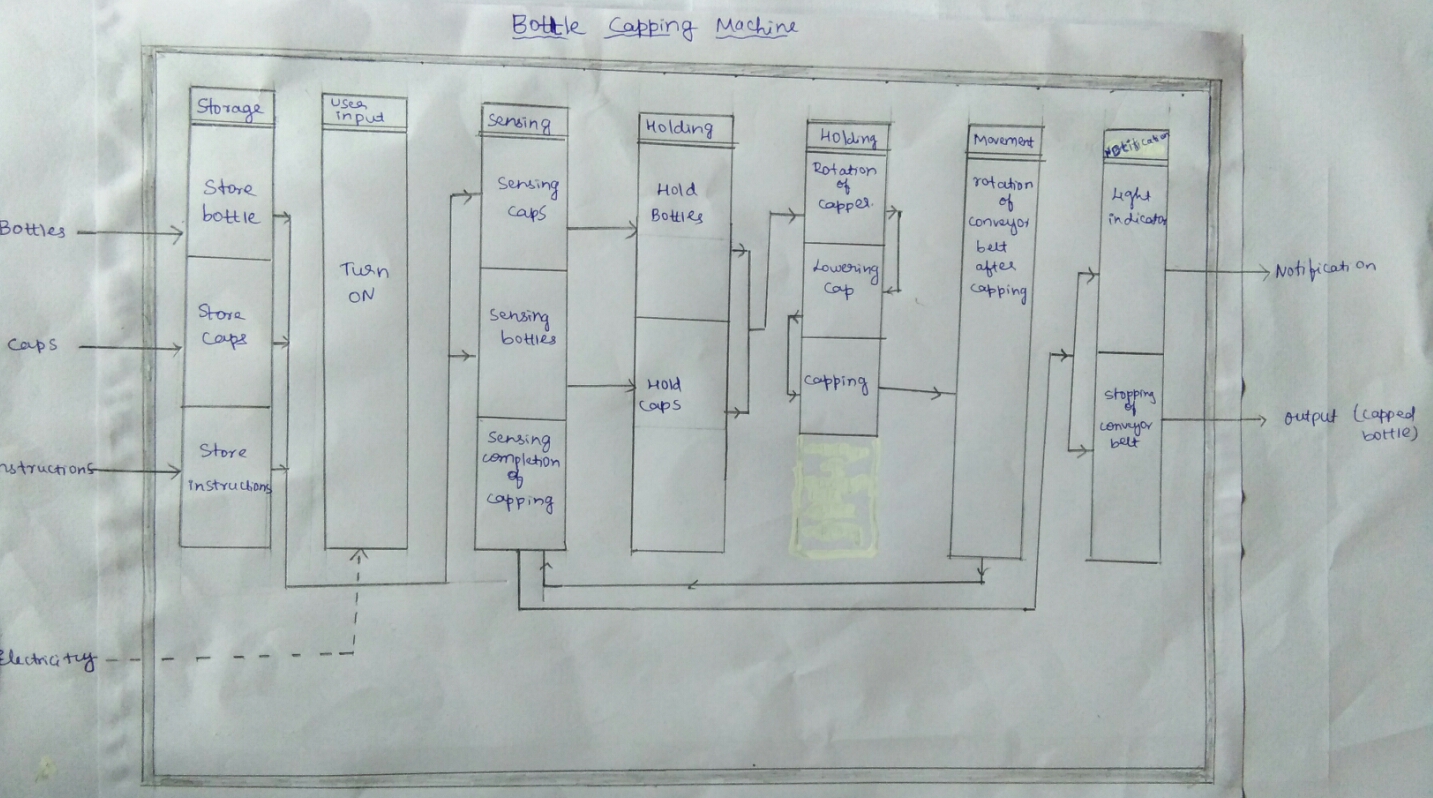 Bottle Capping Machine
Storage
Store
bottle
Store
Caps
Store
instructions
User
input
Turn
ON
Sensing
Sensing
caps
Sensing
bottles
Sensing
completion
of
capping
Holding
Hold
Bottles
Hold
caps
Holding
Rotation
of
capper.
Lowering
cap
Capping
Movement
rotation
of
conveyor
belt
after
capping
Notification
Light
indicator
Stopping
of
conveyor
belt
Bottles
Caps
nstructions
Electricity
Notification
output (capped
bottle)